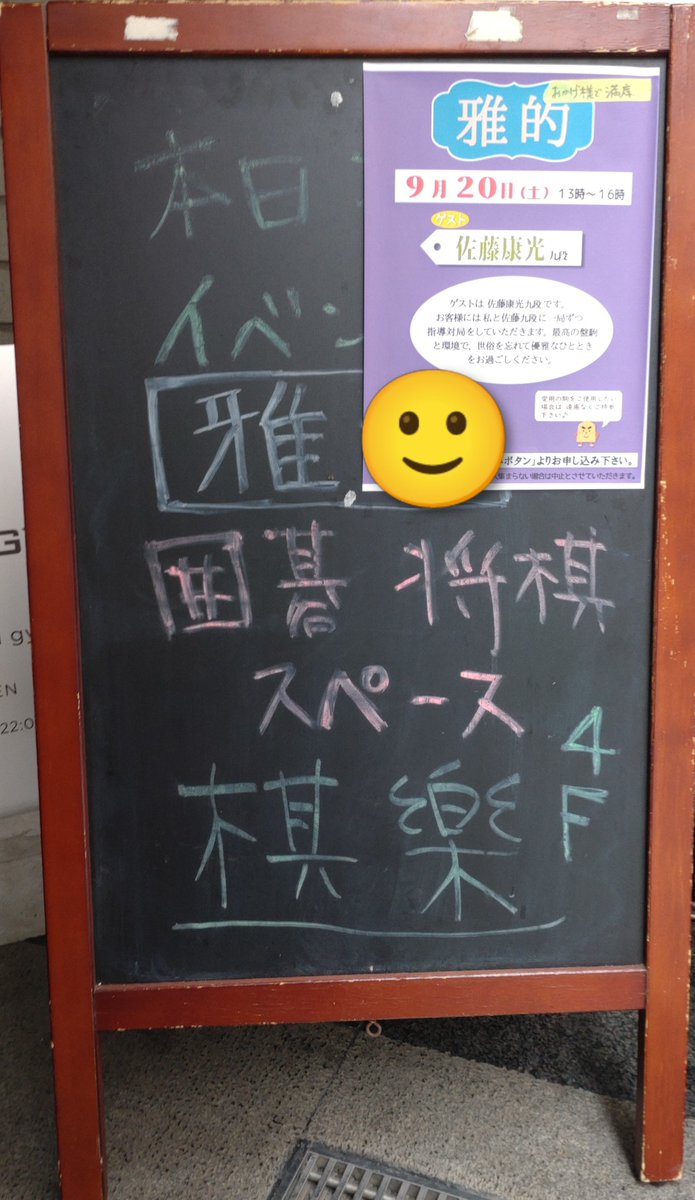 本日
イベン
雅
囲碁 将棋
スペース
4F
棋樂
おかげ様で満席
雅的
9月20日(土) 13時〜16時
ゲスト
佐藤康光九段
ゲストは 佐藤康光九段です。
お客様には 私と佐藤九段に一局ずつ
指導対局をしていただきます。最高の盤駒
と環境で、世俗を忘れて優雅なひととき
をお過ごしください。
愛用の駒をご使用したい
場合は 遠慮なくご持参
下さい♪
ボタン」よりお申し込み下さい。
集まらない場合は中止とさせていただきます。
22:0